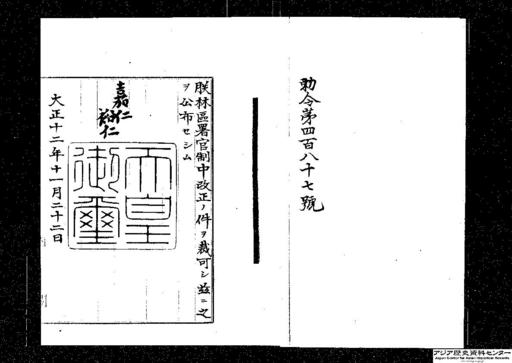 勅令第四百八十七號
朕林區署官制中改正ノ件ヲ裁可シ茲ニ之
ヲ公布セシム
嘉仁
裕仁
天皇
御璽
大正十二年十一月二十二日
アジア歴史資料センター
Japan Center for Asian Historical Records